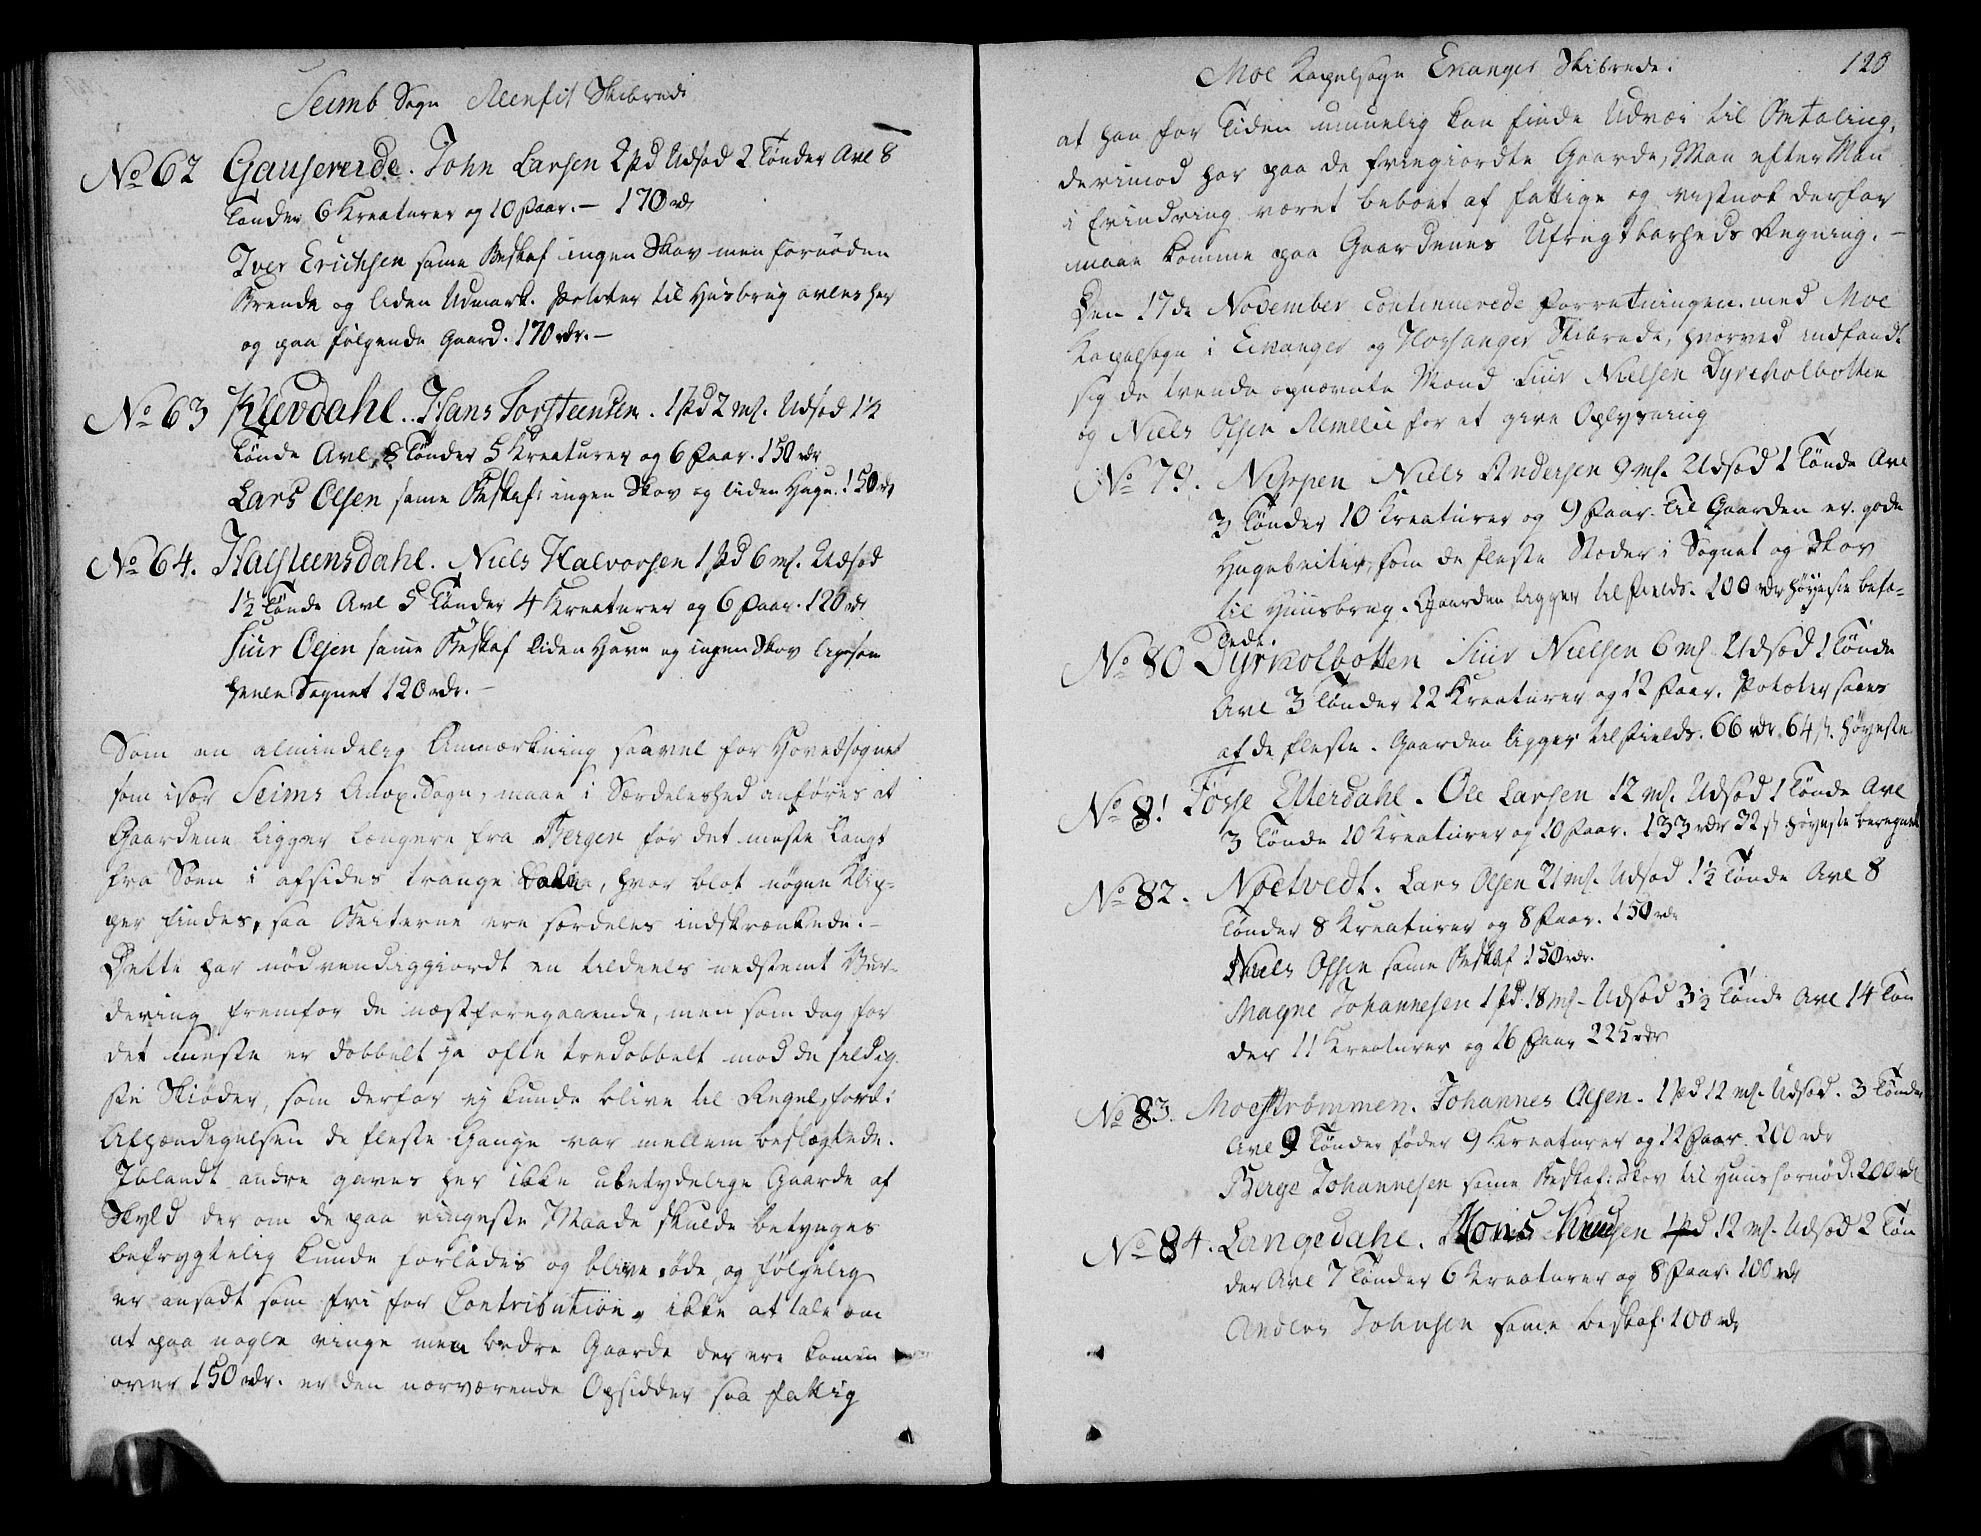 Seimb Sogn Reenfit Skibrede
No 62 Gausereide. John Larsen 2 pd Udsæd 2 Tønder Avl 8
Tønder 6 Kreaturer og 10 Faar. — 170 rdr
Iver Erichsen same Beskaf ingen Skov men fornøden
Brende og liden Udmark. Poteter til Husbrug avles her
og paa følgende Gaard. 170 rdr. —
No 63 Klevdahl. Hans Torsteensen. 1 pd 2 mrk. Udsæd 1½
Tønde Avl 8 Tønder 5 Kreaturer og 6 Faar. 150 rdr
Lars Olsen same Beskaf: ingen Skov og liden Hagn. 150 rdr
No 64. Halsteensdahl. Niels Halvorsen 1 pd 6 mrk. Udsæd
1½ Tønde Avl 5 Tønder 4 Kreaturer og 6 Faar. 120 rdr
Siur Olsen same Beskaf liden Havn og ingen Skov ligesom
heele Sognet 120 rdr. —
Som en almindelig Anmærkning saavel for Hovedsognet
som især Seims Anex Sogn, maae i Særdeleshed anføres at
Gaardene ligger længere fra Bergen for det meste langt
fra Søen i afsides trange Dale, hvor blot nøgne Klip-
per findes, saa Beiterne ere særdeles indskrænkede. —
Dette har nødvendiggiordt en tildeels nedstemt Vur-
dering fremfor de næstforegaaende, men som dog for
det meste er dobbelt ja ofte tredobbelt mod de sildig-
ste Skiøder, som derfor ej kunde blive til Regel, fordi
Afhændigelsen de fleste Gange var mellem beslægtede.
Iblandt andre gaves her ikke ubetydelige Gaarde af
Skyld der om de paa ringeste Maade skulde betynges
befrygtelig kunde forlades og blive øde, og følgelig
er ansadt som fri for Contribution, ikke at tale om
at paa nogle ringe men bedre Gaarde der ere komen
over 150 rdr. er den nærværende Opsidder saa fattig
Moe Kapelsogn Exanger Skibrede. 120
at han for Tiden umuelig kan finde Udvei til Betaling,
derimod har paa de friegiordte Gaarde, Man efter Man
i Erindring været beboet af fattige og vistnok derfor
maae komme paa Gaardenes Ufrugtbarheds Regning. —
Den 17de November continuerede Forretningen med Moe
Kapelsogn i Exanger og Hosanger Skibrede, hvorved indfandt
sig de tvende opnævnte Mænd Siur Nielsen Dyrekolbotten
og Niels Olsen Remelie for at give Oplysning
No 79. Neppen Niels Andersen 9 mrk. Udsæd 1 Tønde Avl
3 Tønder 10 Kreaturer og 9 Faar. Til Gaarden er gode
Hagebeiter, som de fleste Stæder i Sognet og Skov
til Huusbrug. Gaarden ligger tilfields. 100 rdr høyeste befa-
lede.
No 80 Dyrkolbotten Siur Nielsen 6 mrk Udsæd 1 Tønde
Avl 3 Tønder 12 Kreaturer og 12 Faar. Poteter saaes
af de fleste. Gaarden ligger tilfields. 66 rdr. 64 s. høyeste
No 81 Fosse Etterdahl. Ole Larsen 12 mrk. Udsæd 1 Tønde Avl
3 Tønde 10 Kreaturer og 10 Faar. 133 rdr 32 s høyeste beregnet
No 82. Noetvedt. Lars Olsen 21 mrk. Udsæd 1½ Tønde Avl 8
Tønder 8 Kreaturer og 8 Faar. 150 rdr
Niels Olsen same Beskaf 150 rdr.
Magne Johannesen 1 pd. 18 mrk. Udsæd 3½ Tønde Avl 14 Tøn
der 11 Kreaturer og 16 Faar 225 rdr
No 83. Moestrømmen. Johannes Olsen. 1 pd 12 mrk. Udsæd. 3 Tønder
Avl 9 Tønder føder 9 Kreaturer og 12 Faar. 200 rdr
Berge Johannesen same Beskaf: Skov til Huusfornød. 200 rdr
No 84. Langedahl. Monis Knudsen 1 pd 12 mrk. Udsæd 2 Tøn
der Avl 7 Tønder 6 Kreaturer og 8 Faar. 100 rdr
Anders Johnsen same beskaf. 100 rdr